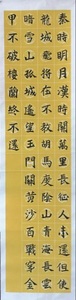 秦時明月漢時關萬里長征人未還但使
龍城飛將在不教胡馬度陰山青海長雲
暗雪山孤城遙望玉門關黃沙百戰穿金
甲不破樓蘭終不還